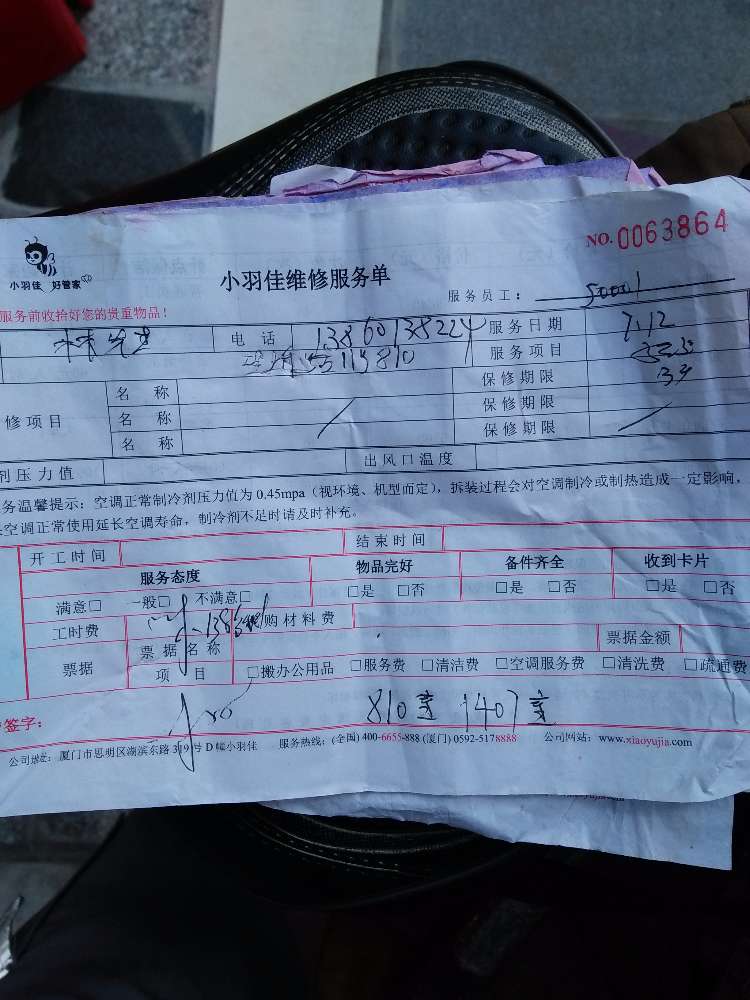 NO.0063864
小羽佳 好管家
小羽佳维修服务单
服务员工： 50001
服务前收拾好您的贵重物品！
林先生 电话 13860138224 服务日期 7.12
服务项目
保修期限
修项目 名称
名称 保修期限
名称 保修期限
剂压力值 出风口温度
务温馨提示：空调正常制冷剂压力值为 0.45mpa（视环境、机型而定），拆装过程会对空调制冷或制热造成一定影响，
空调正常使用延长空调寿命，制冷剂不足时请及时补充。
开工时间 结束时间
服务态度 物品完好 备件齐全 收到卡片
满意□ 一般□ 不满意□ □是 □否 □是 □否 □是 □否
工时费 购材料费
票据 票据名称 票据金额
项目 □搬办公用品 □服务费 □清洁费 □空调服务费 □清洗费 □疏通费
签字： 810 1407
公司地址：厦门市思明区湖滨东路319号D幢小羽佳 服务热线：(全国) 400-6655-888 (厦门) 0592-5178888 公司网站：www.xiaoyujia.com